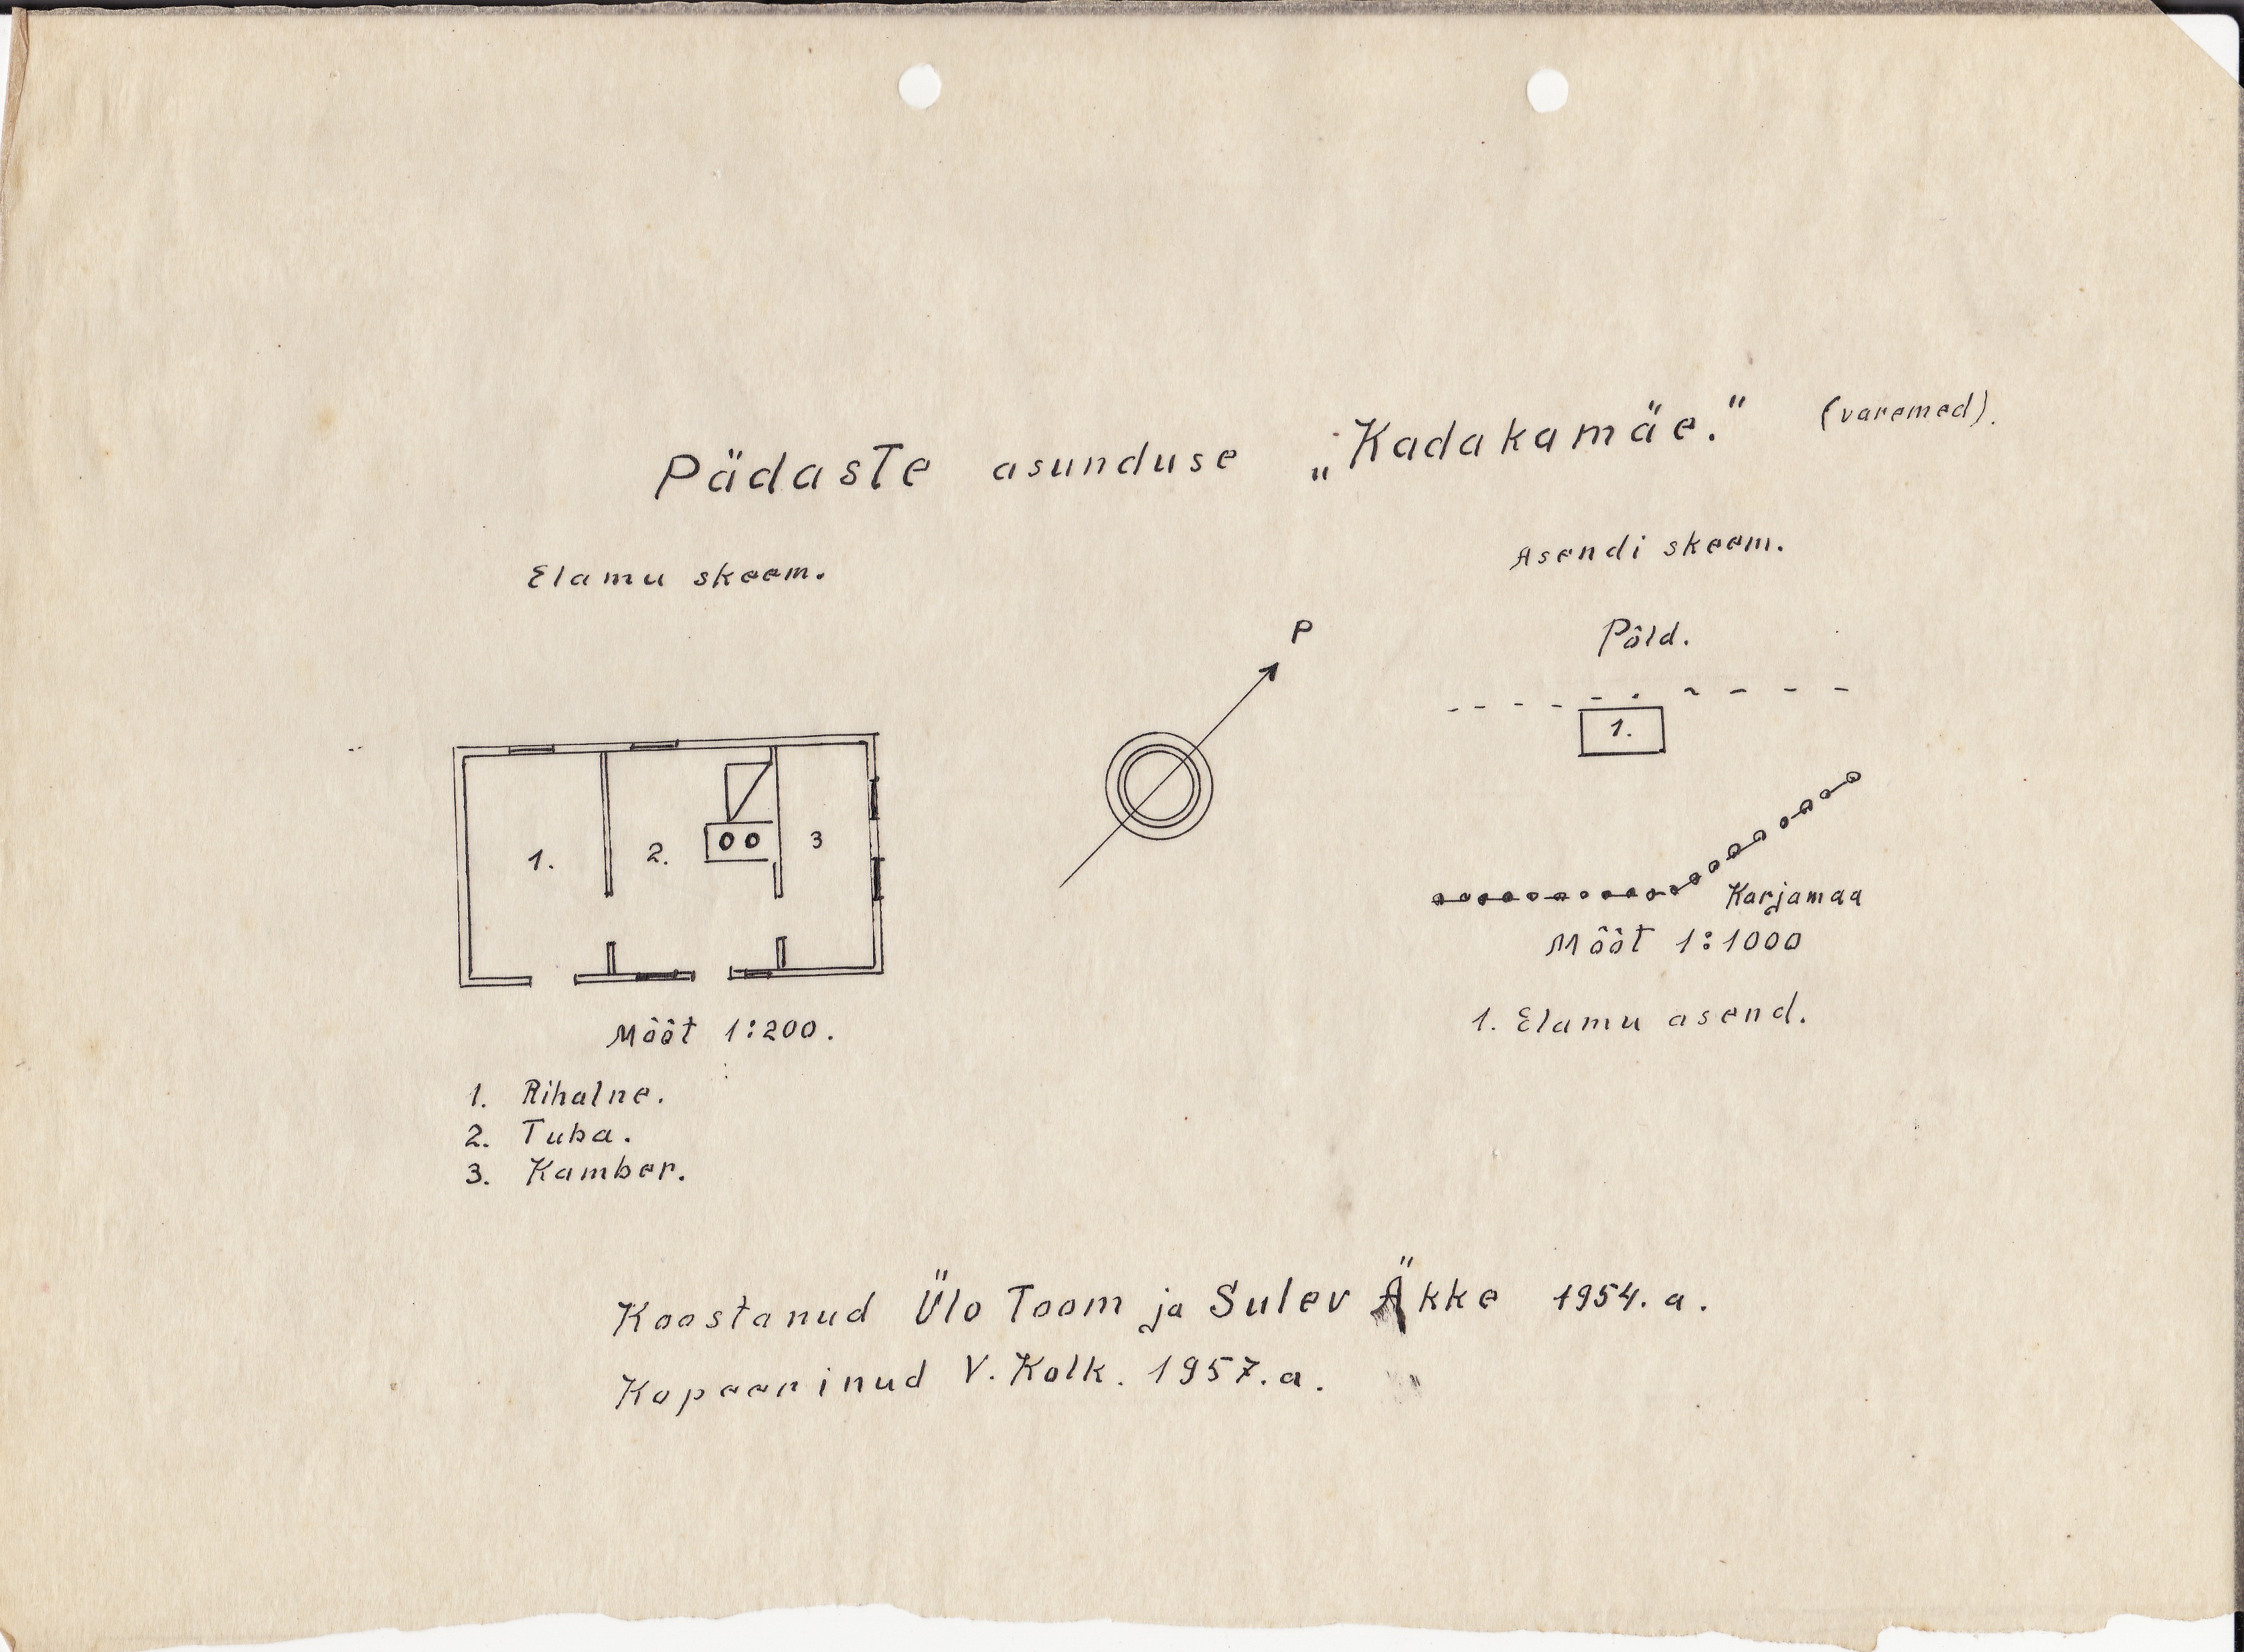 Pädaste asunduse „Kadakamäe." (varemed).
Elamu skeem.
1.
2.
3
Mõõt 1:200.
1. Rihalne.
2. Tuba.
3. Kamber.
P
Asendi skeem.
Põld.
1.
Karjamaa
Mõõt 1:1000
1. Elamu asend.
Koostanud Ülo Toom ja Sulev Äkke 1954. a.
Kopeerinud V. Kolk. 1957. a.